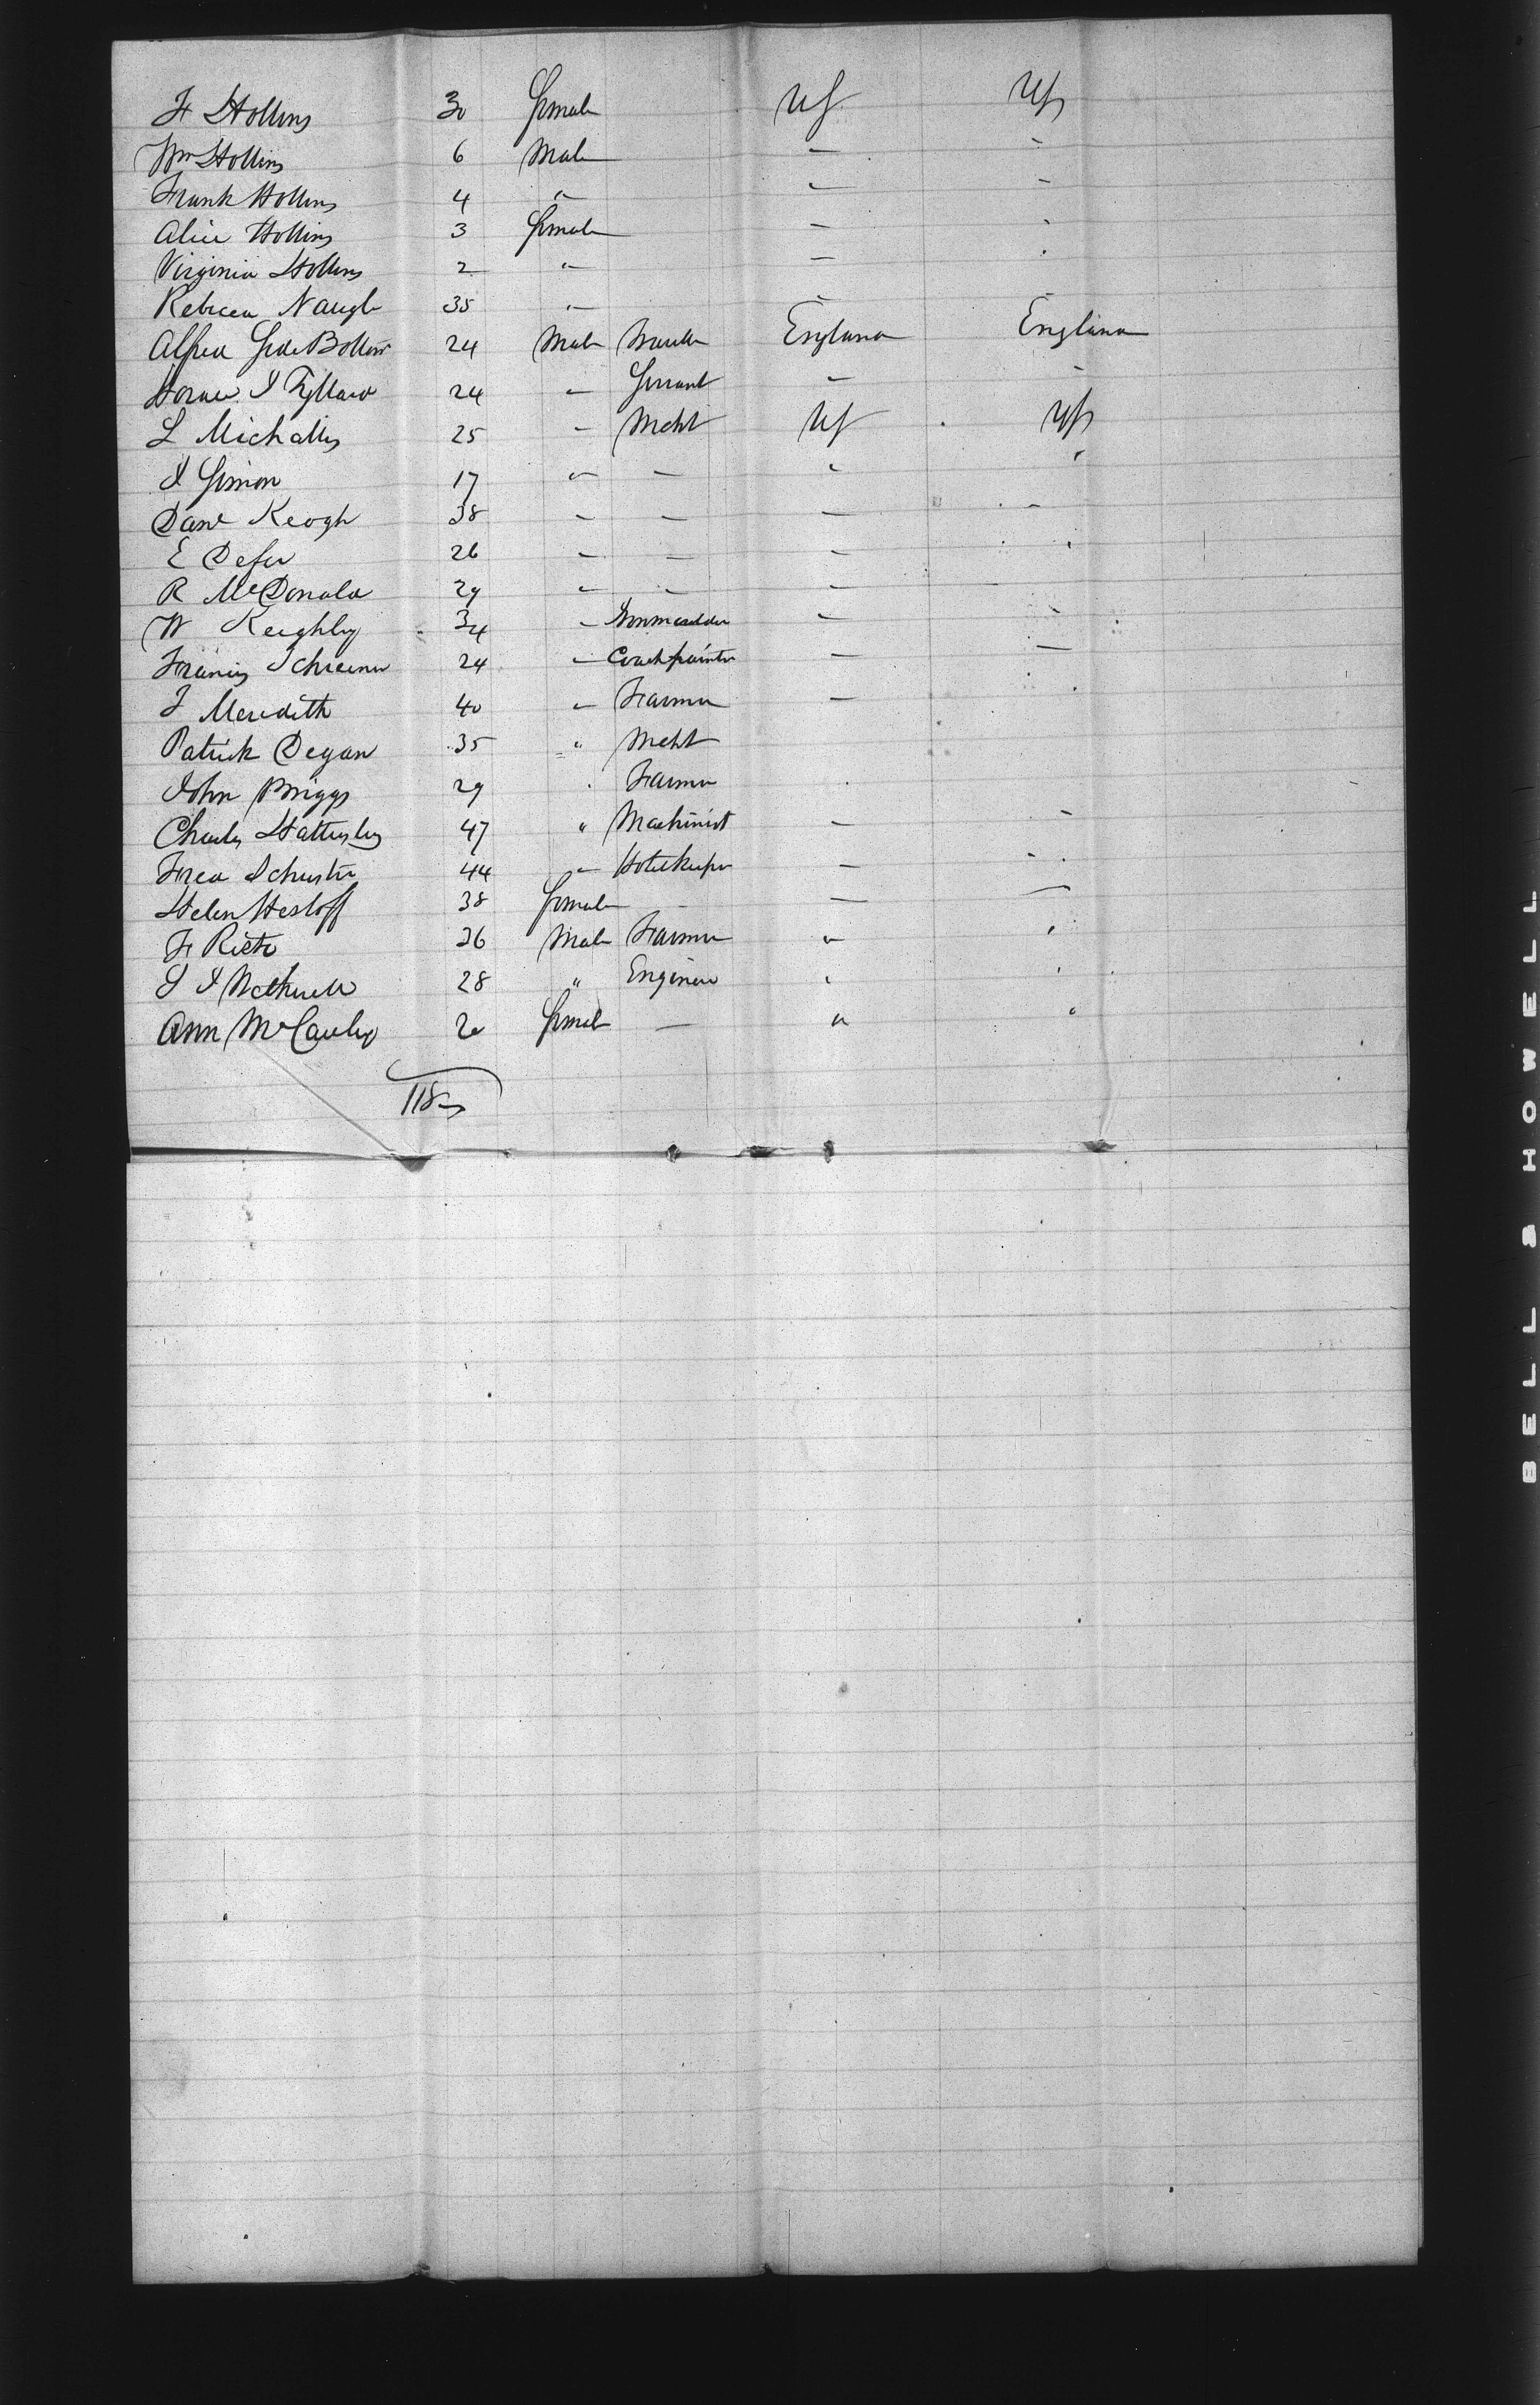 H Hollins 30 Female US US
Wm Hollins 6 Male — —
Frank Hollins 4 " — —
Alice Hollins 3 Female — —
Virginia Hollins 2 " — —
Rebecca Naugh 35 " —
Alfred 24 Male England England
24 " Servant — —
L Michallis 25 " Mcht US US
I Simon 17 " — — "
Danl Keogh 38 — — — —
E Defer 26 — — — —
R McDonald 29 — — —
W Keighley 34 " Ironmoulder — —
Francis Schreiner 24 " Coachpainter — —
J Meredith 40 " Farmer —
Patrick Degan 35 " Mcht
John Briggs 29 " Farmer
Charles Hattersley 47 " Machinist — —
Fred Schuster 44 " Hotelkeeper — —
Helen Hesloff 38 Female — — —
F Rieto 26 Male Farmer " "
28 " Engineer " "
Ann McCauley 20 Female — " "
118
BELL & HOWELL